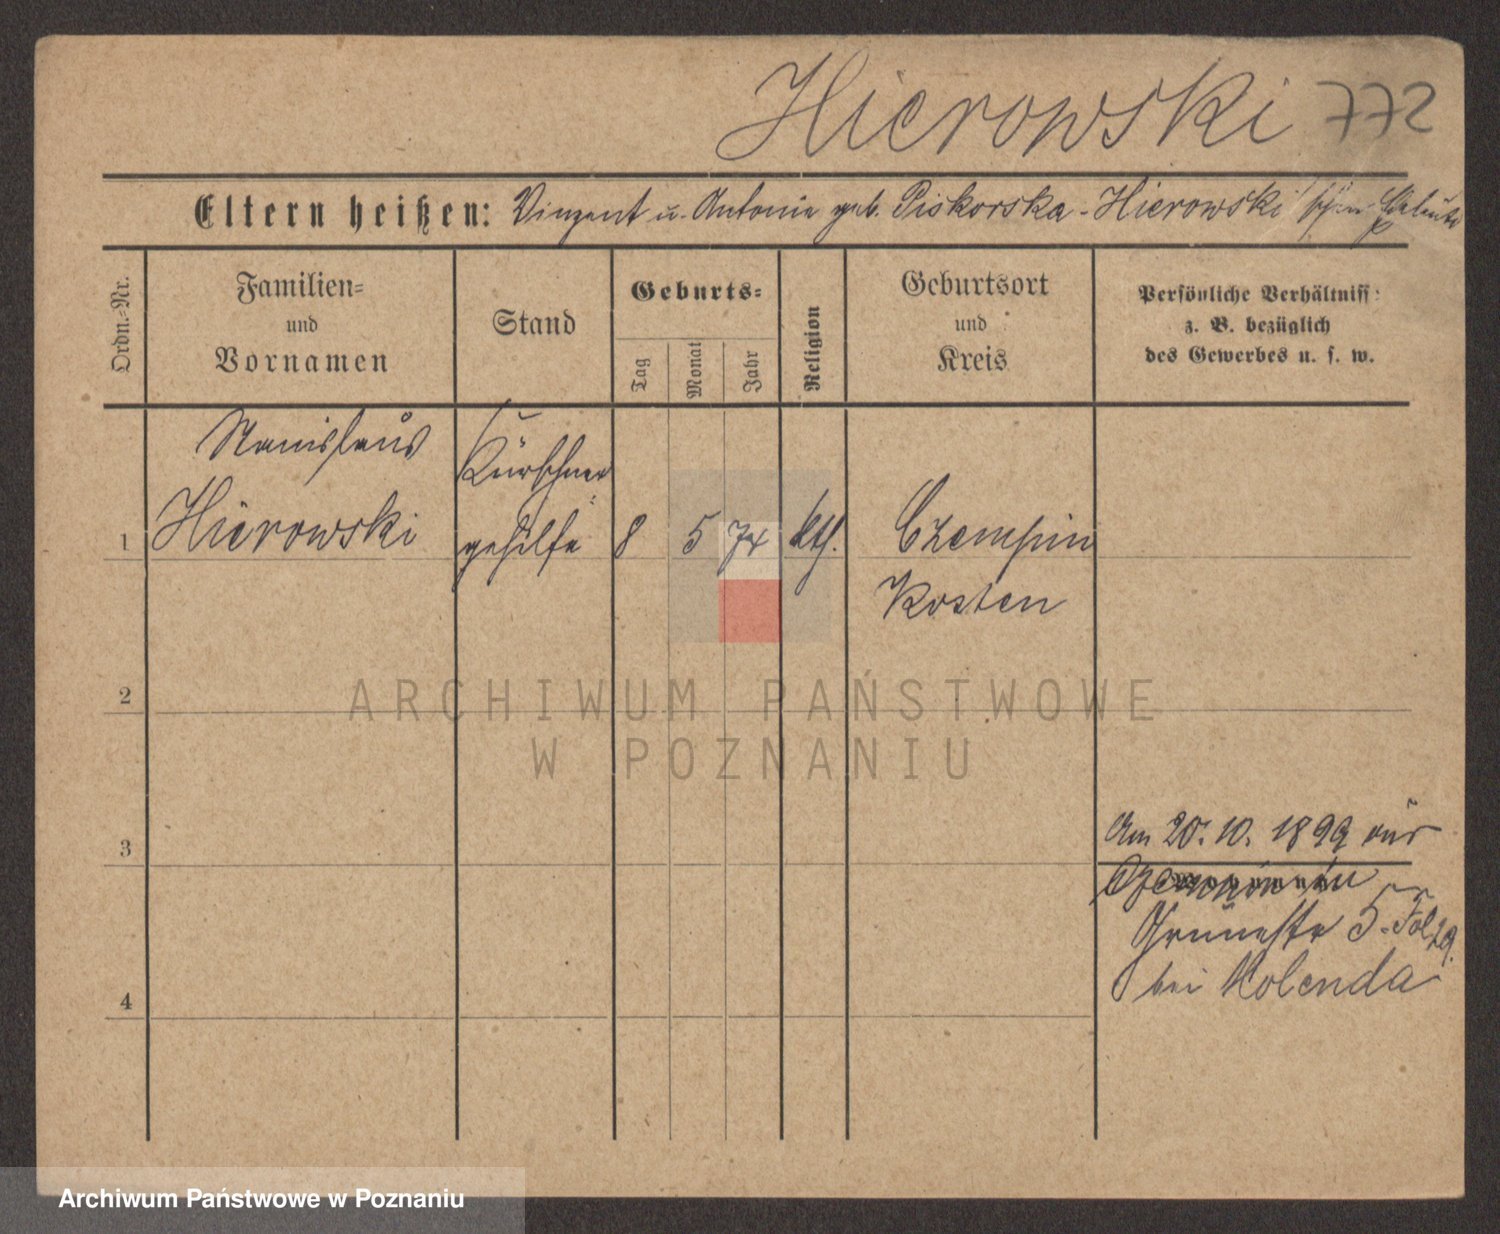 Hierowski 772
Eltern heißen: Vinzent u. Antonie geb. Piskorska-Hierowski'schen Eheleute
Ordn.-Nr.
Familien-
und
Vornamen
Stand
Geburts-
Tag
Monat
Jahr
Religion
Geburtsort
und
Kreis
Persönliche Verhältniss
z. B. bezüglich
des Gewerbes u. s. w.
Stanislaus
Kürschner
1 Hierowski gehilfe 8 5 74 kth. Czempin
Kosten
2
ARCHIWUM PAŃSTWOWE
W POZNANIU
3
Am 20. 10. 1899 aus
Czempin in
Grünestr 5. Fol 29.
bei Molenda
4
Archiwum Państwowe w Poznaniu